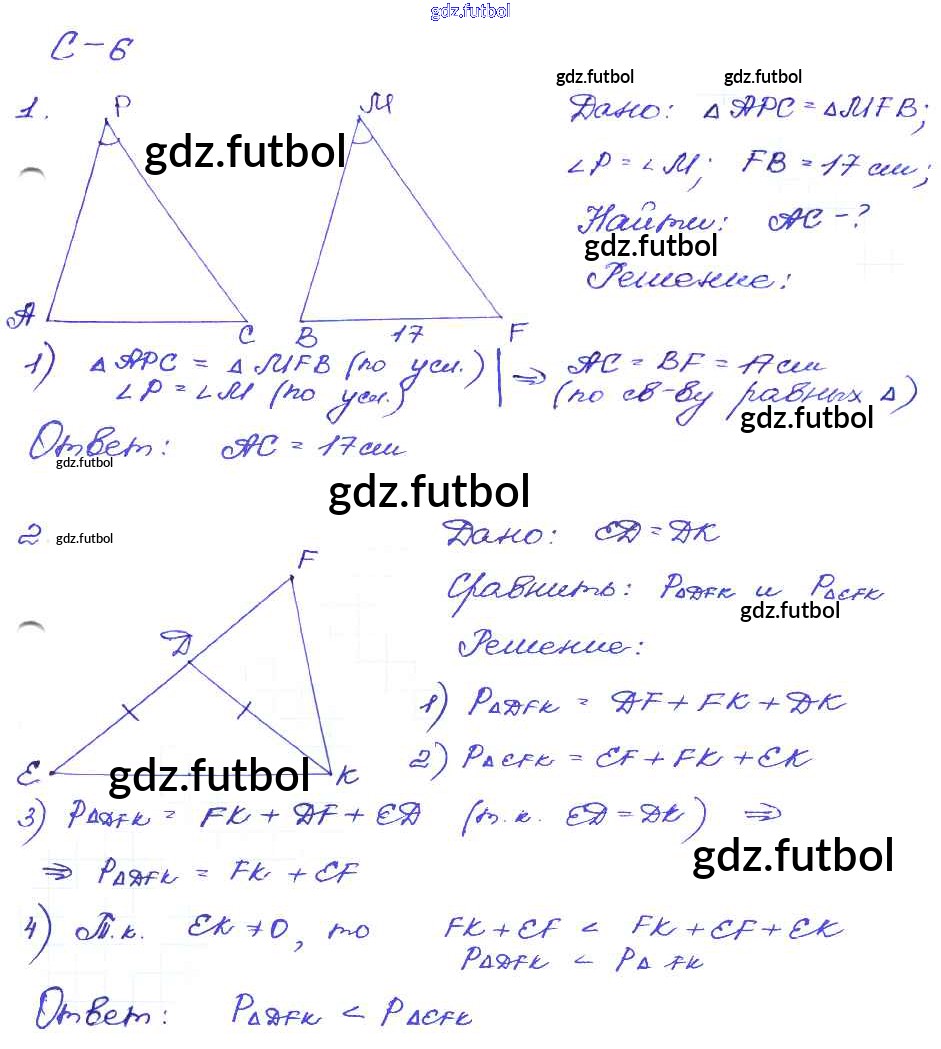 gdz.futbol
С-6
gdz.futbol gdz.futbol
1. P M Дано: △ APC = △ MFB;
gdz.futbol
∠P = ∠M; FB = 17 см;
Найти: AC - ?
gdz.futbol
Решение:
A C B 17 F
1) △ APC = △ MFB (по усл.) | ⇒ AC = BF = 17 см
∠P = ∠M (по усл.) (по св-ву равных △)
gdz.futbol
Ответ: AC = 17 см
gdz.futbol
gdz.futbol
2 gdz.futbol Дано: ED = DK
F
Сравнить: P△DFK и P△EFK
gdz.futbol
D Решение:
1) P△DFK = DF + FK + DK
E gdz.futbol K 2) P△EFK = EF + FK + EK
3) P△DFK = FK + DF + ED (т.к. ED = DK) ⇒
gdz.futbol
⇒ P△DFK = FK + EF
4) Т.к. EK ≠ 0, то FK + EF < FK + EF + EK
P△DFK < P△ FK
Ответ: P△DFK < P△EFK